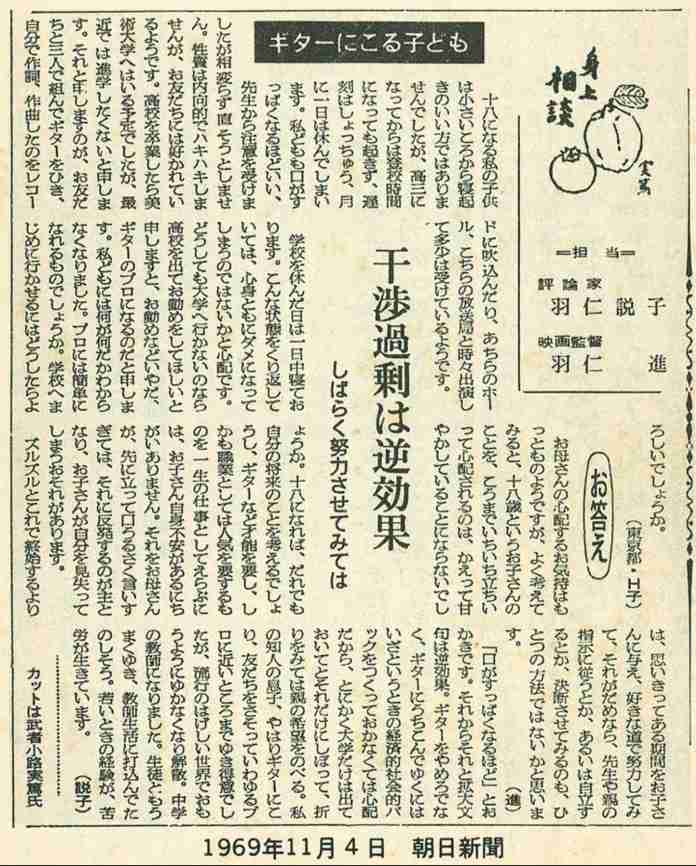 ギターにこる子ども
身上
相談
実篤
＝担当＝
評論家
羽仁説子
映画監督
羽仁　進
十八になる私の子供
は小さいころから寝起
きのいい方ではありま
せんでしたが、高三に
なってからは登校時間
になっても起きず、遅
刻はしょっちゅう、月
に一日は休んでしまい
ます。私どもも口がす
っぱくなるほどいい、
先生から注意を受けま
したが相変らず直そうとしませ
ん。性質は内向的でハキハキしま
せんが、お友だちには好かれてい
るようです。高校を卒業したら美
術大学へはいる予定でしたが、最
近では進学したくないと申しま
す。それと申しますのが、お友だ
ちと三人で組んでギターをひき、
自分で作詞、作曲したのをレコー
ドに吹込んだり、あちらのホー
ル、こちらの放送局と時々出演し
て多少は受けているようです。
干渉過剰は逆効果
しばらく努力させてみては
学校を休んだ日は一日中寝てお
ります。こんな状態をくり返して
いては、心身ともにダメになって
しまうのではないかと心配です。
どうしても大学へ行かないのなら
高校を出てお勤めをしてほしいと
申しますと、お勤めなどいやだ、
ギターのプロになるのだと申しま
す。私どもには何が何だかわから
なくなりました。プロには簡単に
なれるものでしょうか。学校へま
じめに行かせるにはどうしたらよ
ろしいでしょうか。
（東京都・H子）
お答え
お母さんの心配するお気持はも
っとものようですが、よく考えて
みると、十八歳というお子さんの
ことを、こうまでいちいち立ちい
って心配されるのは、かえって甘
やかしていることにならないでし
ょうか。十八になれば、だれでも
自分の将来のことを考えるでしょ
うし、ギターなど才能を要し、し
かも職業としては人気を要するも
のを一生の仕事としてえらぶに
は、お子さん自身不安があるにち
がいありません。それをお母さん
が、先に立って口うるさく言いす
ぎては、それに反発するのが主と
なり、お子さんが自分を見失って
しまうおそれがあります。
ズルズルとこれで終始するより
は、思いきってある期間をお子さ
んに与え、好きな道で努力してみ
て、それがだめなら、先生や親の
指示に従うとか、あるいは自立す
るとか、決断させてみるのも、ひ
とつの方法ではないかと思いま
す。
（進）
「口がすっぱくなるほど」とお
かきです。それからそれと拡大文
句は逆効果。ギターをやめろでな
く、ギターにうちこんでゆくには
いざというときの経済的社会的バ
ックをつくっておかなくては心配
だから、とにかく大学だけは出て
おいてとそれだけにしぼって、折
りをみては親の希望をのべる。私
の知人の息子、やはりギターにこ
り、友だちをさそっていわゆるプ
ロに近いところまでゆき得意でし
たが、流行のはげしい世界でおも
うようにゆかなくなり解散。中学
の教師になりました。生徒ともう
まくゆき、教師生活に打込んでた
のしそう。若いときの経験が、苦
労が生きています。
（説子）
カットは武者小路実篤氏
1969年11月4日　朝日新聞